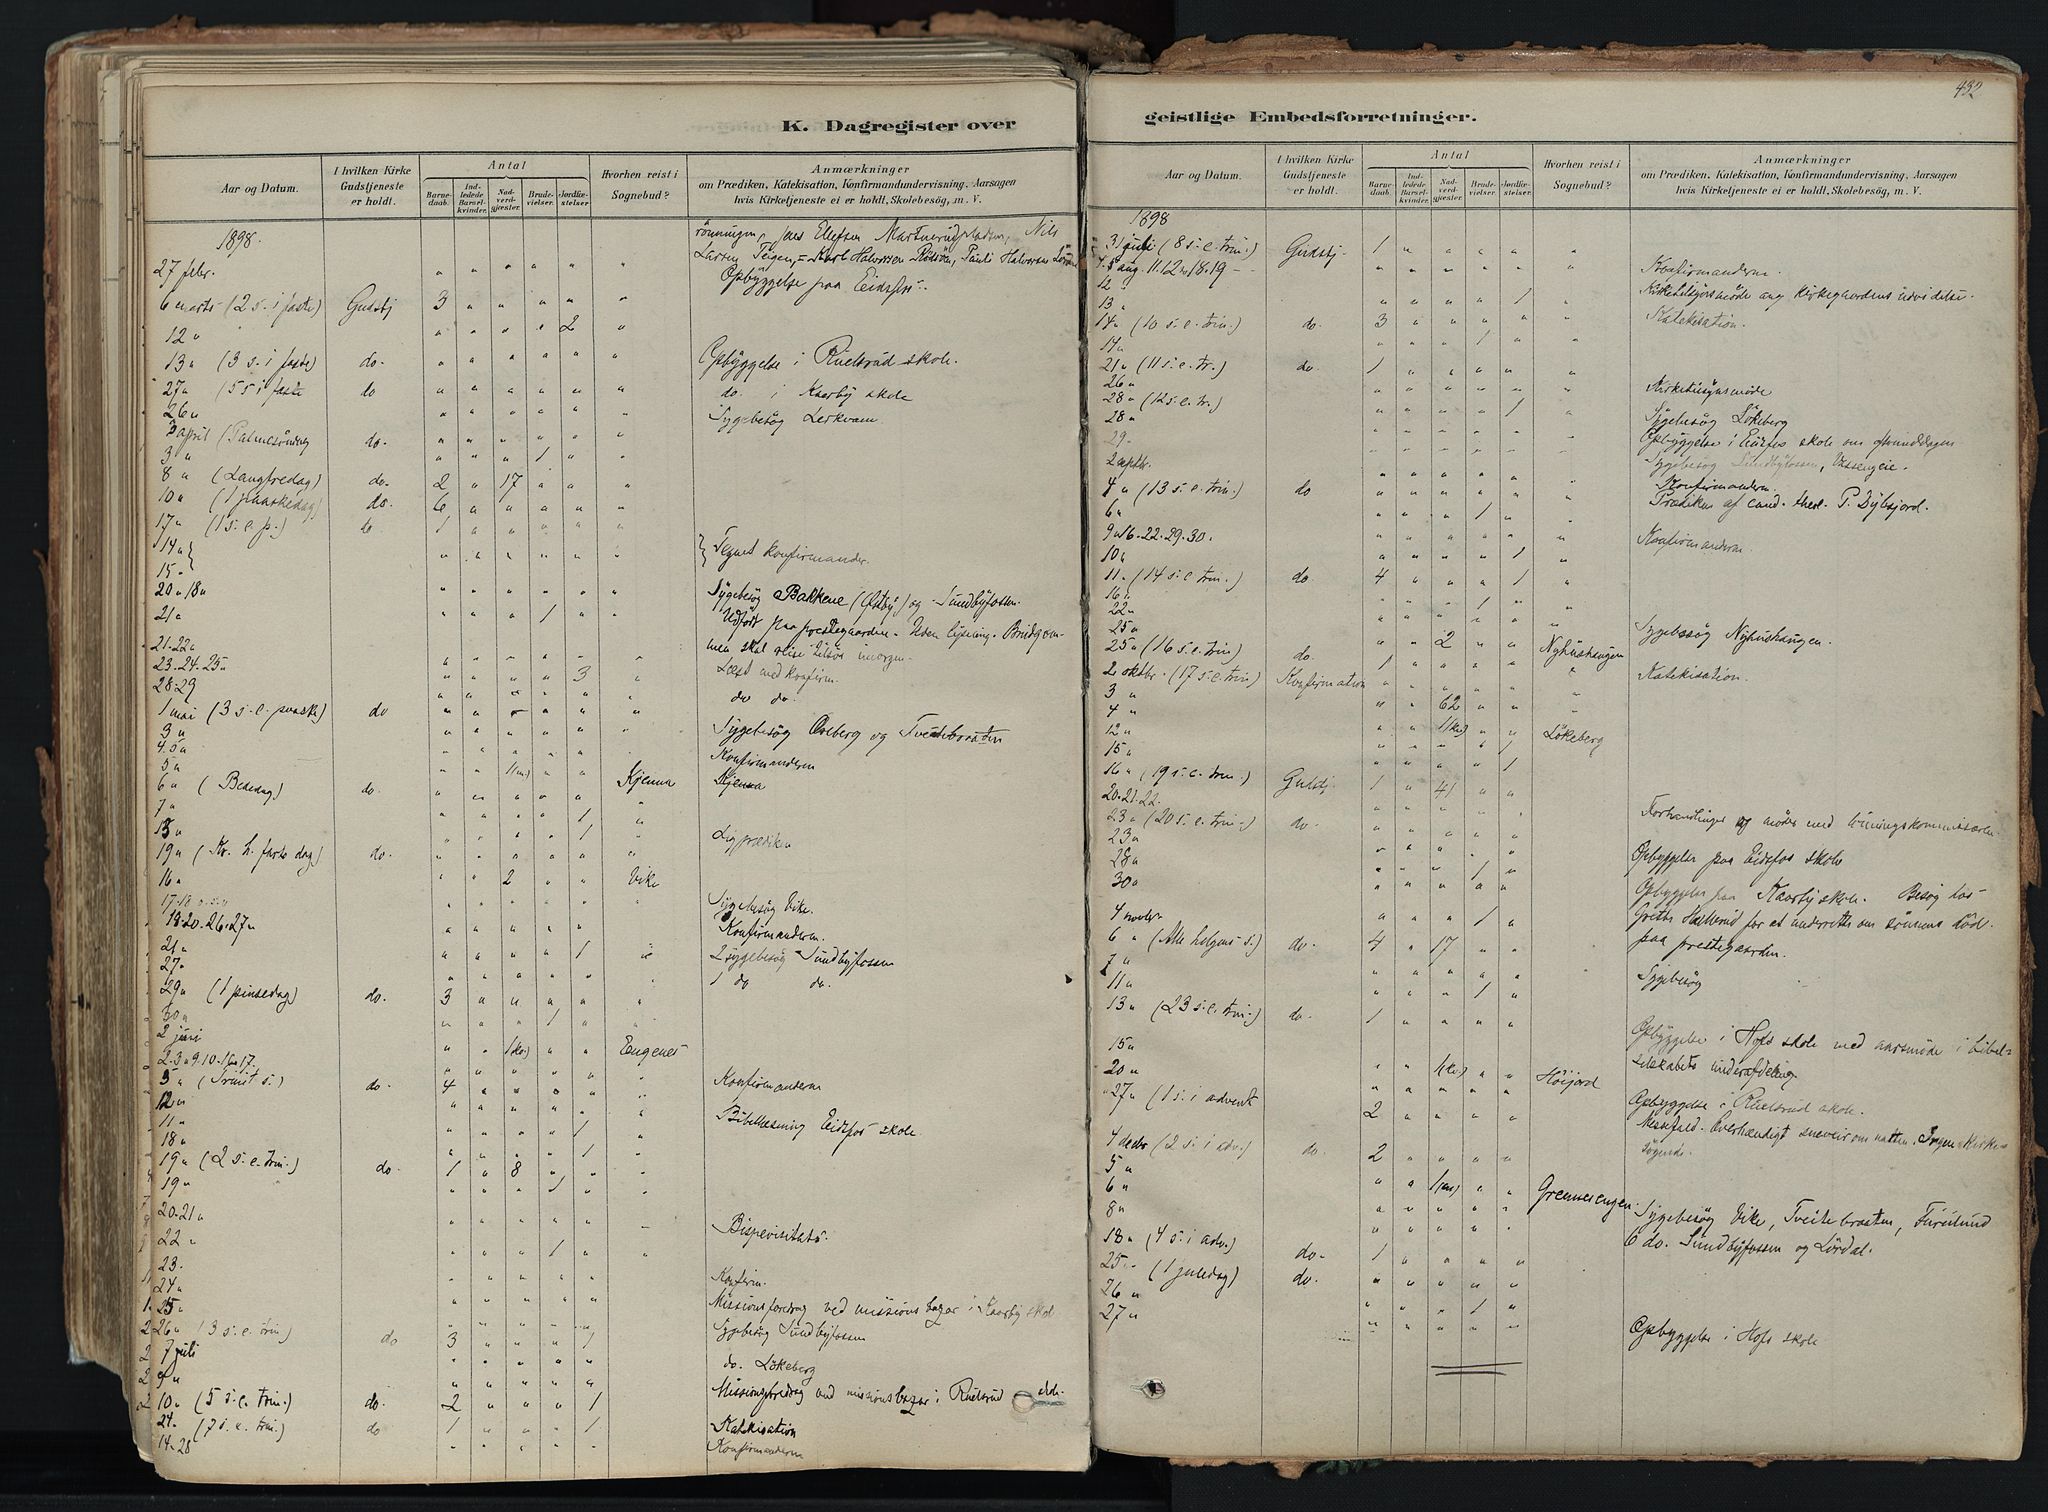 K. Dagregister over
Aar og Datum.
I hvilken Kirke Gudstjeneste er holdt.
Antal
Barne-daab.
Ind-ledede Barsel-kvinder.
Nad-verd-gjæster.
Brude-vielser.
Jordfæ-stelser.
Hvorhen reist i Sognebud?
Anmærkninger
om Prædiken, Katekisation, Konfirmandundervisning, Aarsagen
hvis Kirketjeneste ei er holdt, Skolebesøg, m. V.
1898.
rönningen, Jens Ellefsen Nils
Larsen Teigen, Karl Halvorsen Pauli Halvorsen
27 febr. Opbyggelse paa Eidsfos.
6 marts (2 s. i faste) Gudstj 3 " " " " "
12 " " " " " 2 "
13 " (3 s. i faste) do. " " " " " " Opbyggelse i Ruelsrud skole.
27 " (5 s i faste do " " " " " " do. i Kaarby skole
26 " Sygebesög Lerkvam
3 april (Palmesöndag do. " " " " " "
3 " " " " 1 " "
8 " (Langfredag) do. 2 " 17 " " "
10 " (1 paaskedag) do. 6 " " " " "
17 " (1 s. e. p.) do 1 " " " " "
14 "
15 " Tegnet konfirmander.
20 " 18 " Sygebesög Bakkene (Østby) og Sundbyfossen.
21 " " " " 1 " " Udfört paa prestegaarden. Uden lysning. Brudgom-
21-22 " men skal reise tilsøs imorgen.
23. 24. 25 " " " " " 3 " Læst med konfirm.
28-29 do do.
1 mai (3 s. e. paaske) do " " " " " "
3 " Sygebesög Ovlberg og Tveitebraaten
4. 5 " Konfirmanderne
5 " " " 1(m.) " " Kjenna Kjenna
6 " (Bededag) do.
7 " " " " " 1 "
13 " " " " " 1 " Ligprædiken
19 " (Kr. h. farts dag) do. " " " " " "
16 " " " 2 " " Vike
17-18 Sygebesög Vike.
18. 20. 26. 27 " Konfirmanderne.
21 " " " " " 1 " 2 sygebesög Sundbyfossen
27 " 1 do do.
29 " (1 pinsedag) do. 3 " " " " "
30 " " " " 1 " "
2 juni " " 1(kv.) " " Engenes
2. 3 " 9. 10. 16 " 17. Konfirmanderne
5 " (Trinit s.) do. 4 " " " " "
12 " Bibellæsning Eidsfos skole
11 " " " " " 1 "
18 " " " " " 1 "
19 " (2 s. e. trin.) do. 1 " 8 " " "
19 " " " " 1 " "
20-21 " Bispevisitats.
22 " " " " 1 " "
23. Konfirm.
24 " Missionsforedrag ved missions bazar i Kaarby skole
25 " Sygebesög Sundbyfossen
26 " (3 s. e. trin.) do 3 " " " 1
7 juli do. Lökeberg
9 " Missionsforedrag ved missionsbazar i Ruelsrud skole
10 " (5 s. e. trin.) do. 2 " " " 1
24. (7 s. e. trin.) do 1 " " " 1 Katekisation
14-28 Konfirmanderne
432
geistlige Embedsforretninger.
Aar og Datum.
I hvilken Kirke Gudstjeneste er holdt.
Antal
Barne-daab.
Ind-ledede Barsel-kvinder.
Nad-verd-gjæster.
Brude-vielser.
Jordfæ-stelser.
Hvorhen reist i Sognebud?
Anmærkninger
om Prædiken, Katekisation, Konfirmandundervisning, Aarsagen
hvis Kirketjeneste ei er holdt, Skolebesøg, m. V.
1898
31 juli (8 s. e. trin.) Gudstj. 1 " " " " "
aug. 11. 12 " 18. 19 Konfirmanderne.
12 " Kirketilsynsmöde ang kirkegaardens udvidelse.
13 " " " " " 1 "
14 " (10 s. e. trin.) do. 3 " " " " " Katekisation.
17 " " " " 1 " "
21 " (11 s. e. tr.) do. 1 " " " " "
26 " Kirketilsynsmöde
28 " (12 s. e. tr.) " " " " 1 "
28 " Sygebesög Lökeberg
29 " Opbyggelse i Eidsfos skole om
2 septbr. Sygebesög Sundbyfossen, Vassengeie.
4 " (13 s. e. trin.) do Konfirmanderne.
6 " " " " 1 " " Prædiken af cand. theol. P. Dybsjord.
9 " 16. 22. 29. 30. Konfirmanderne.
10 " " " " " 1 "
11 " (14 s. e. trin.) do. 4 " " " 1 "
16 " " " " 1 " "
22 "
25 " " " 2 " " Nyhushaugen Sygebesög Nyhushaugen.
25 " (16 s. e. trin) do. 1 " " " " " Katekisation.
2 oktbr. (17 s. e. trin) Konfirmation
3 " " " 62 " " "
4 " " " 1(kv.) " " Lökeberg
12 " " " " 1 "
15 " " " " " 1
16 " (19 s. e. trin.) Gudstj. 1 " 41 " "
20. 21. 22. Forhandlinger og möder med
23 " (20 s. e. trin.) do.
23 " Opbyggelse paa Eidsfos skole
28 " " " " 1 "
30 " Opbyggelse paa Kaarby skole. Besög hos
4 novbr. " " " 1 " Grethe for at underrette om sönnens död.
6 " (Alle helgens s.) do. 4 " 17 " " paa prestegaarden.
7 " Sygebesög
11 " " " " 1 "
13 " (23 s. e. trin.) do. 1 " " " "
15 " Opbyggelse i Hofs skole med aarsmöde i bibel-
20 " " " 1(kv.) " " Höijord selskabets underafdeling
27 " (1 s. i advent 2 " " " " Opbyggelse i Ruelsrud skole.
4 decbr (2 s. i adv.) do. 2 " " " " Messefald. Overhændigt sneveir om natten. Ingen kirke-
5 " søgende.
6 " " " 1(m) " " Grennesengen
8 " Sygebesög Vike, Tveitebraaten, Furulund
18 " (4 s. i adv.) do. 1 " " " " 6 do. Sundbyfossen og Lördal.
25 " (1 juledag) do. " " " " "
26 " " " " 1 "
27 " Opbyggelse i Hofs skole